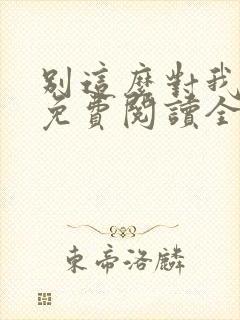 別這麼對我
免費閱讀全
東帝洛麟